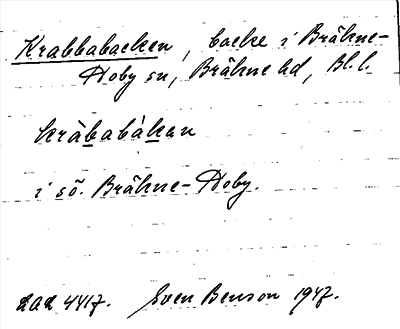 Krabbabacken, backe i Bräkne-
Hoby sn, Bräkne hd, Bl. l.
kràbabàkan
i sö. Bräkne-Hoby.
LAD 4417. Sven Benson 1947.